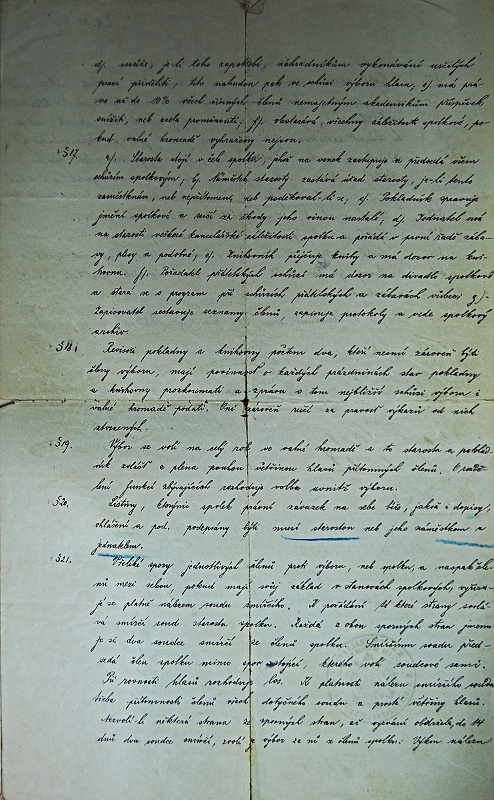 d) může, je-li toho zapotřebí, náhradníkům vykonávání určitých
prací přiděliti, tito nabudou pak ve schůzi výboru hlasu, e) má prá-
vo až do 10% všech činných členů nemajetným akademikům příspěvek
snížiti, neb zcela prominouti, f) obstarává všechny záležitosti spolkové, po-
kud valné hromadě vyhraženy nejsou.
§17. a) Starosta stojí v čele spolku, jej na venek zastupuje a předsedá všem
schůzím spolkovým, b) Náměstek starosty zastává úřad starosty, je-li tento
zaměstknán, neb nepřítomen, neb poděkoval-li se, c) Pokladník spravuje
jmění spolkové a ručí za škody jeho vinou nastalé, d) Jednatel má
na starosti veškeré kancelářské záležitosti spolku a pořádá v první řadě zába-
vy, plesy a podobné, e) knihovník půjčuje knihy a má dozor na kni-
hovnu. f) Pořadatel přátelských schůzí má dozor na divadlo spolkové
a stará se o program při schůzích přátelských a zábavách vůbec. g)
Zapisovatel sestavuje seznamy členů, zapisuje protokoly a vede spolkový
archiv.
§18. Revisoři pokladny a knihovny počtem dva, kteří nesmí zároveň býti
členy výboru, mají povinnost o každých prázdninách stav pokladny
a knihovny prozkoumati a zprávu o tom nejbližší schůzi výboru i
valné hromadě podati. Oni zároveň ručí za pravost výkazů od nich
§19. Výbor se volí na celý rok ve valné hromadě a to starosta a poklad-
ník zvlášť a plena pouhou většinou hlasů přítomných členů. O rozdě-
lení funkcí zbývajících rozhoduje volba uvnitř výboru.
§20. Listiny, kterými spolek právní závazek na sebe béře, jakož i dopisy,
ohlášení a pod. podepsány býti musí starostou neb jeho náměstkem a
jednatelem.
§21. Veškeré spory jednotlivých členů proti výboru, neb spolku, a naopak čle-
nů mezi sebou, pokud mají svůj základ v stanovách spolkových, vyřizu-
jí se platně nálezem soudu smírčího. K požádání té které strany svolá-
vá smírčí soud starosta spolku. Každá z obou sporných stran jmenu-
je si dva soudce smírčí ze členů spolku. Smírčímu soudu před-
sedá člen spolku mimo spor stojící, kterého volí soudcové sami.
Při rovnosti hlasů rozhoduje los. K platnosti nálezu smírčího soudu
třeba přítomnosti členů všech dotyčného soudu a prosté většiny hlasů.
Nezvolí-li některá strana ze sporných stran, ač vyzvání obdržela, do 14
dnů dva soudce smírčí, zvolí je výbor za ní z členů spolku. Výkon nálezu